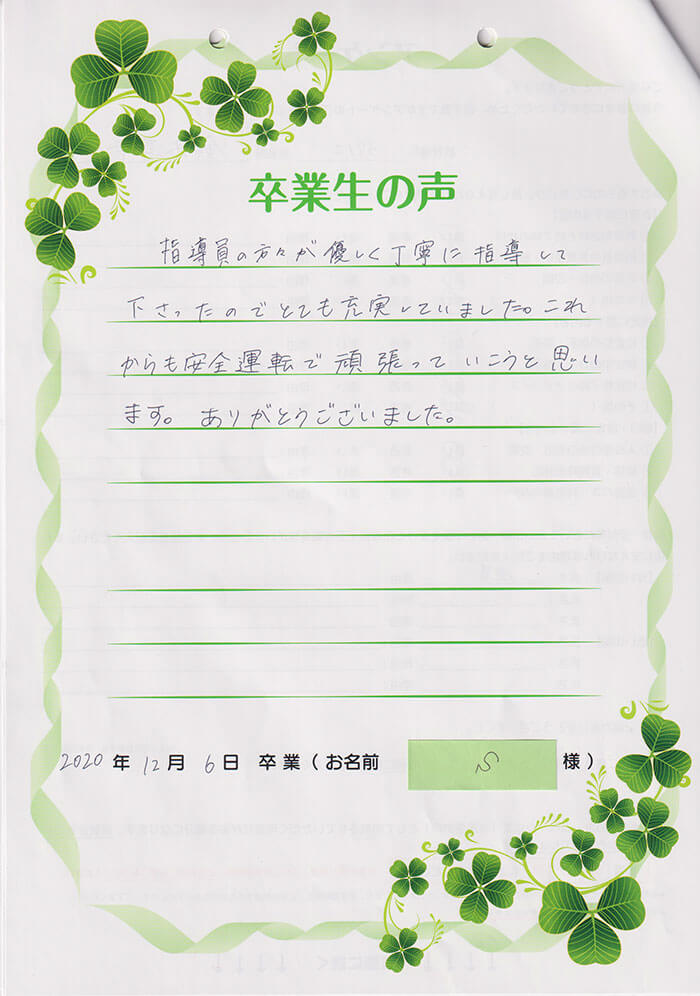 卒業生の声
指導員の方々が優しく丁寧に指導して
下さったのでとても充実していました。これ
からも安全運転で頑張っていこうと思い
ます。ありがとうございました。
2020年12月6日 卒業(お名前 S 様)